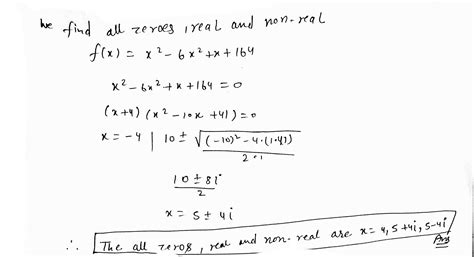 We find all zeroes, real and non-real
f(x) = x² - 6x² + x + 164
x² - 6x² + x + 164 = 0
(x+4) (x² - 10x + 41) = 0
x = -4 | 10 ± √(-10)² - 4·(1·41)
2·1
10 ± 8i
2
x = 5 ± 4i
∴ The all zeros, real and non-real are x = 4, 5+4i, 5-4i
Ans